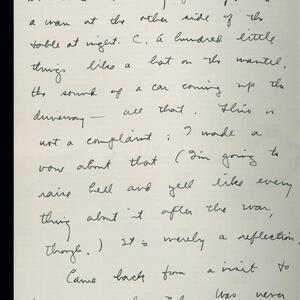 a man at the other side of the
table at night. C. A hundred little
things like a hat on the mantel,
the sound of a car coming up the
driveway — all that. This is
not a complaint; I made a
vow about that (I'm going to
raise hell and yell like every
thing about it after the war,
though.) It is merely a reflection.
Came back from a visit to
was never